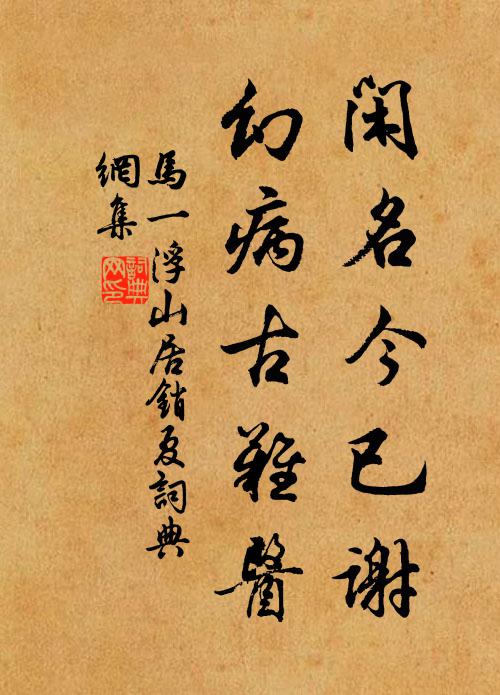 閑名今已谢
幻病古難醫
馬一浮山居銷夏詞典
網集
詞典
网印